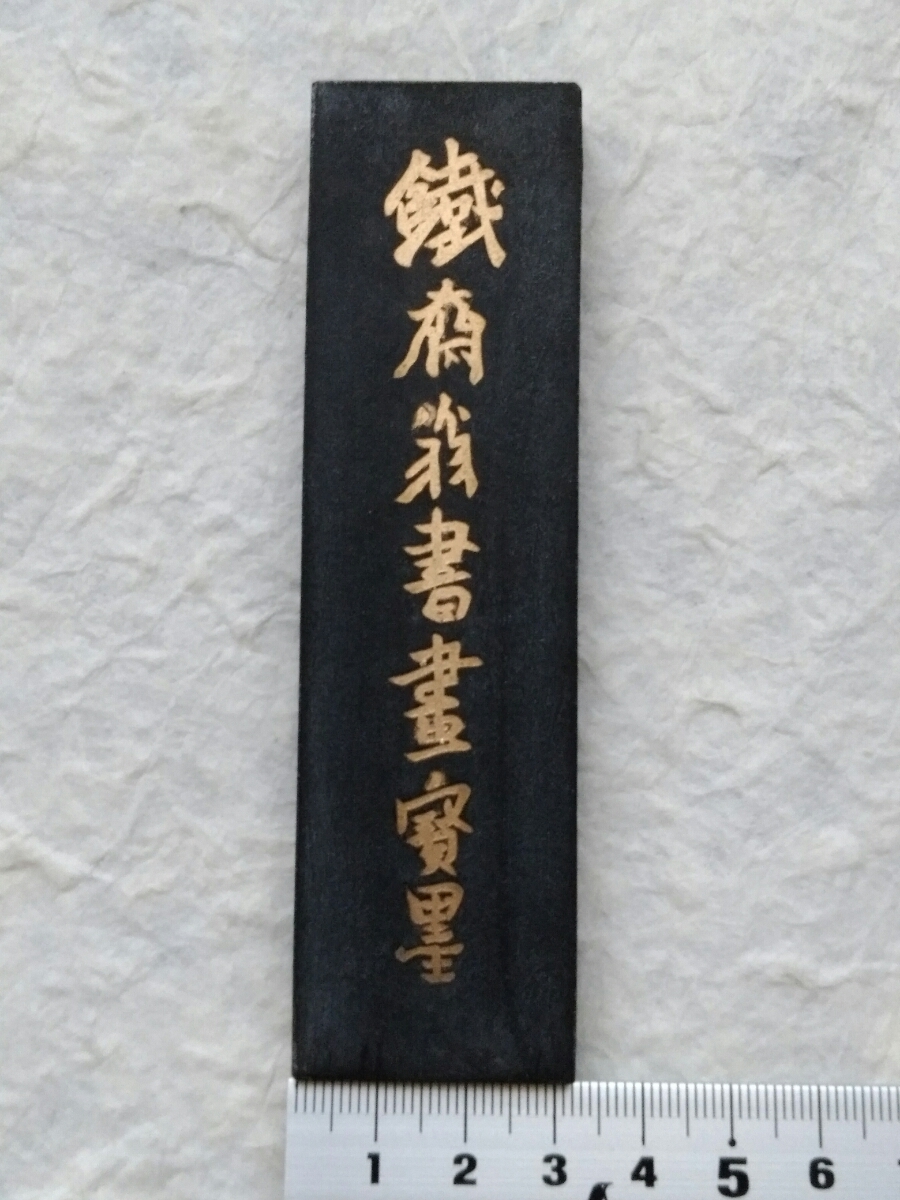 鐵斎翁書畫寳墨
1 2 3 4 5 6